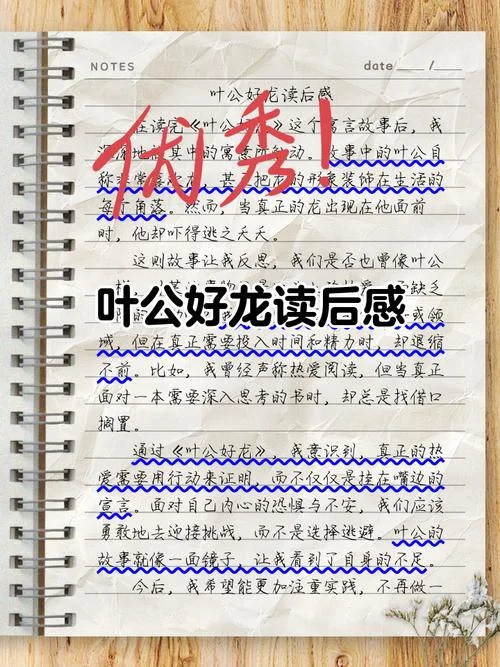 NOTES
date ___ / ___
叶公好龙读后感
优秀！
在读完《叶公好龙》这个寓言故事后，我
深地其中的寓意所动。故事中的叶公自
称非常喜欢龙，甚至把龙的形象装饰在生活的
每个角落。然而，当真正的龙出现在他面前
时，他却吓得逃之夭夭。
这则故事让我反思，我们是否也曾像叶公
叶公好龙读后感
缺乏
或领
域，但在真正需要投入时间和精力时，却退缩
不前。比如，我曾经声称热爱阅读，但当真正
面对一本需要深入思考的书时，却总是找借口
搁置。
通过《叶公好龙》，我意识到，真正的热
爱需要用行动来证明，而不仅仅是挂在嘴边的
宣言。面对自己内心的恐惧与不安，我们应该
勇敢地去迎接挑战，而不是选择逃避。叶公的
故事就像一面镜子，让我看到了自身的不足。
今后，我希望能更加注重实践，不再做一